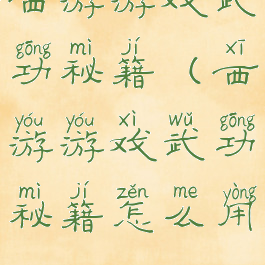 西游游戏武
gōng mì jí xī
功秘籍（西
yóu yóu xì wǔ gōng
游游戏武功
mì jí zěn me yòng
秘籍怎么用